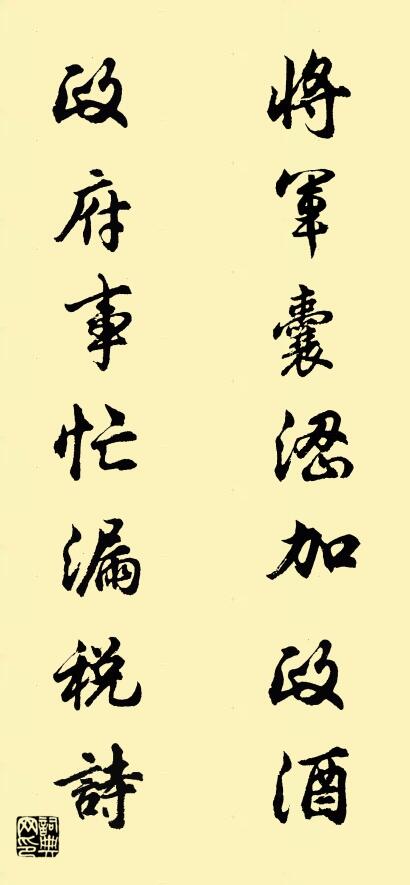 將軍囊涩加政酒
政府事忙漏税詩
詞典网印